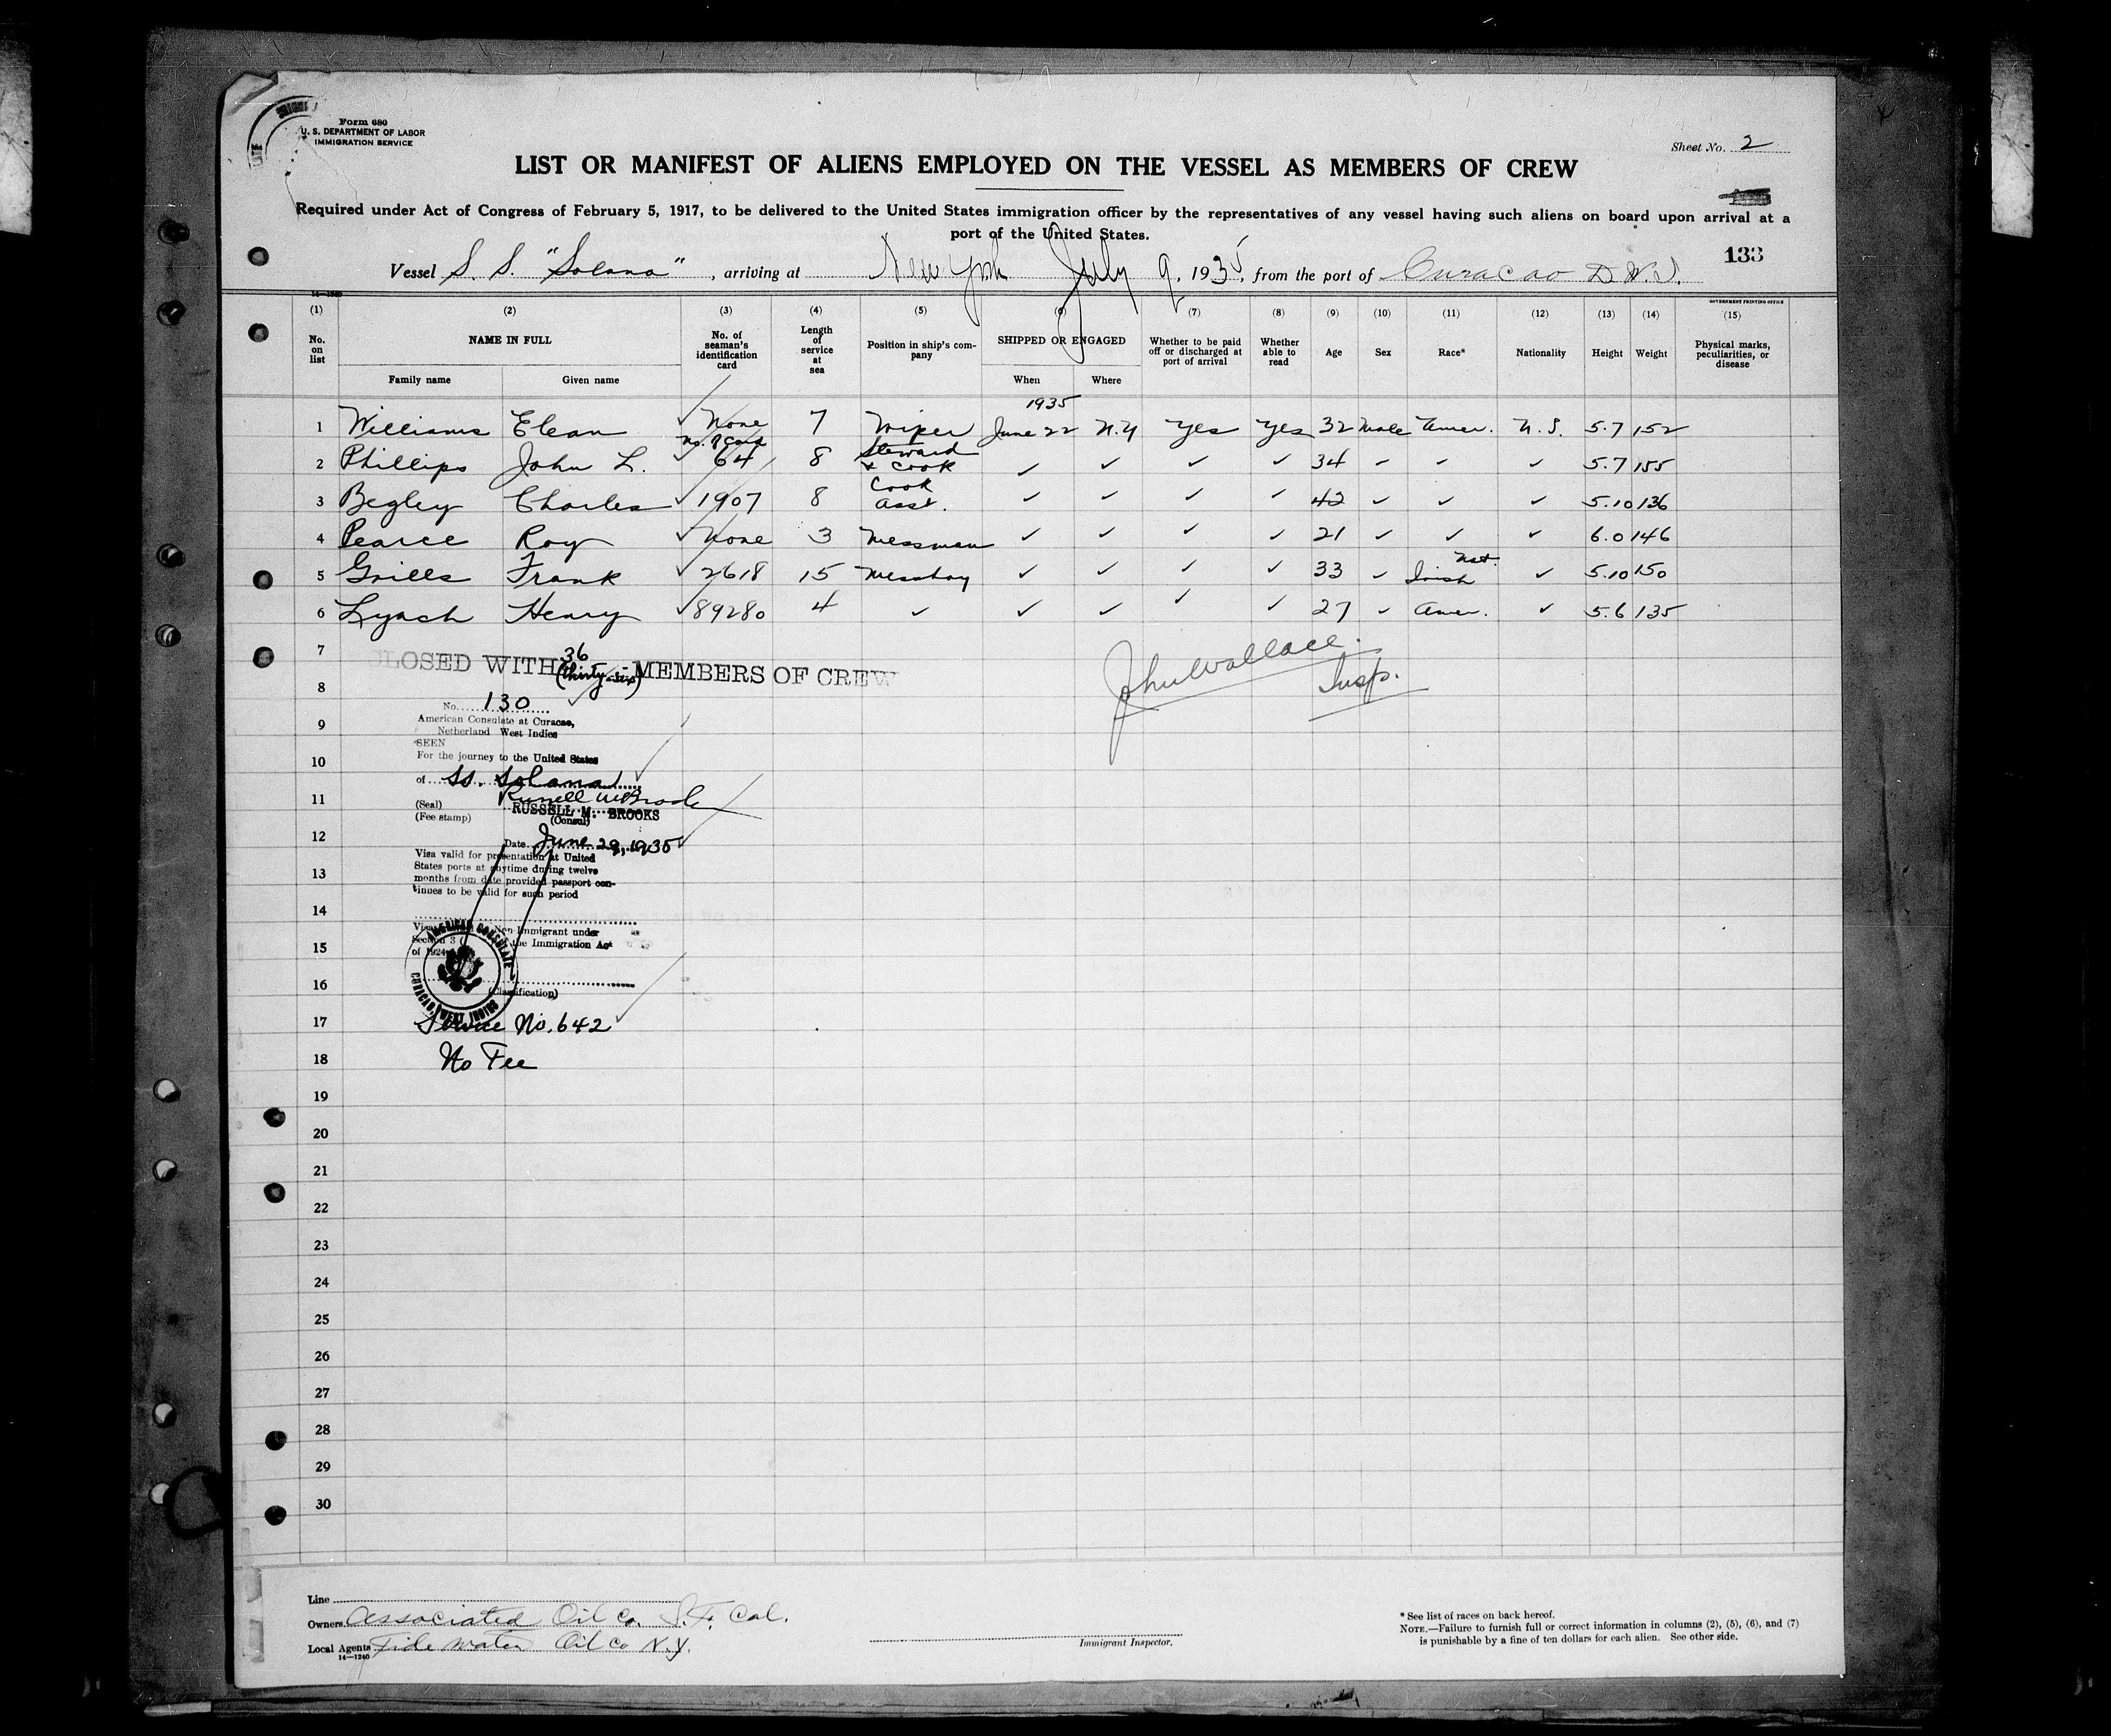 Form 680
U. S. DEPARTMENT OF LABOR
IMMIGRATION SERVICE
Sheet No. 2
LIST OR MANIFEST OF ALIENS EMPLOYED ON THE VESSEL AS MEMBERS OF CREW
Required under Act of Congress of February 5, 1917, to be delivered to the United States immigration officer by the representatives of any vessel having such aliens on board upon arrival at a
port of the United States.
133
Vessel S. S. "Solana", arriving at New York July 9, 1935, from the port of Curacao D.W.I.
14—1240
GOVERNMENT PRINTING OFFICE
(1) (2) (3) (4) (5) (6) (7) (8) (9) (10) (11) (12) (13) (14) (15)
No. on list NAME IN FULL No. of seaman's identification card Length of service at sea Position in ship's company SHIPPED OR ENGAGED Whether to be paid off or discharged at port of arrival Whether able to read Age Sex Race* Nationality Height Weight Physical marks, peculiarities, or disease
Family name Given name When Where
1935
1 Williams Elean ✓ None 7 Wiper June 22 N.Y Yes Yes 32 Male Amer. U.S. 5.7 152
2 Phillips John L. ✓ 64 8 Steward & Cook ✓ ✓ ✓ ✓ 34 ✓ ✓ ✓ 5.7 155
3 Begley Charles ✓ 1907 8 Cook Asst. ✓ ✓ ✓ ✓ 42 ✓ ✓ ✓ 5.10 136
4 Pearce Roy ✓ None 3 Messman ✓ ✓ ✓ ✓ 21 ✓ ✓ ✓ 6.0 146
5 Grills Frank ✓ 2618 15 Messboy ✓ ✓ ✓ ✓ 33 ✓ Irish Nat. ✓ 5.10 150
6 Lynch Henry ✓ 89280 4 ✓ ✓ ✓ ✓ ✓ 27 ✓ Amer. ✓ 5.6 135
7
CLOSED WITH 36 (thirty-six) MEMBERS OF CREW
John Wallace
Insp.
8
No. 130
9
American Consulate at Curacao,
Netherland West Indies
SEEN
10
For the journey to the United States
of SS. Solana
11
Russell M Brooks
(Seal) RUSSELL M. BROOKS
(Fee stamp) (Consul)
12
Date June 29, 1935
Visa valid for presentation at United
States ports at anytime during twelve
13
months from date provided passport con-
tinues to be valid for such period
14
Non-Immigrant under
15
Section 3 ( the Immigration Act
of 1924
AMERICAN CONSULATE
CURACAO, WEST INDIES
16
(Classification)
17
Service No. 642
18
No Fee
19
20
21
22
23
24
25
26
27
28
29
30
Line
Owners Associated Oil Co. S.F. Cal.
Local Agents Tide Water Oil Co N.Y.
14—1240
Immigrant Inspector.
* See list of races on back hereof.
NOTE.—Failure to furnish full or correct information in columns (2), (5), (6), and (7)
is punishable by a fine of ten dollars for each alien. See other side.